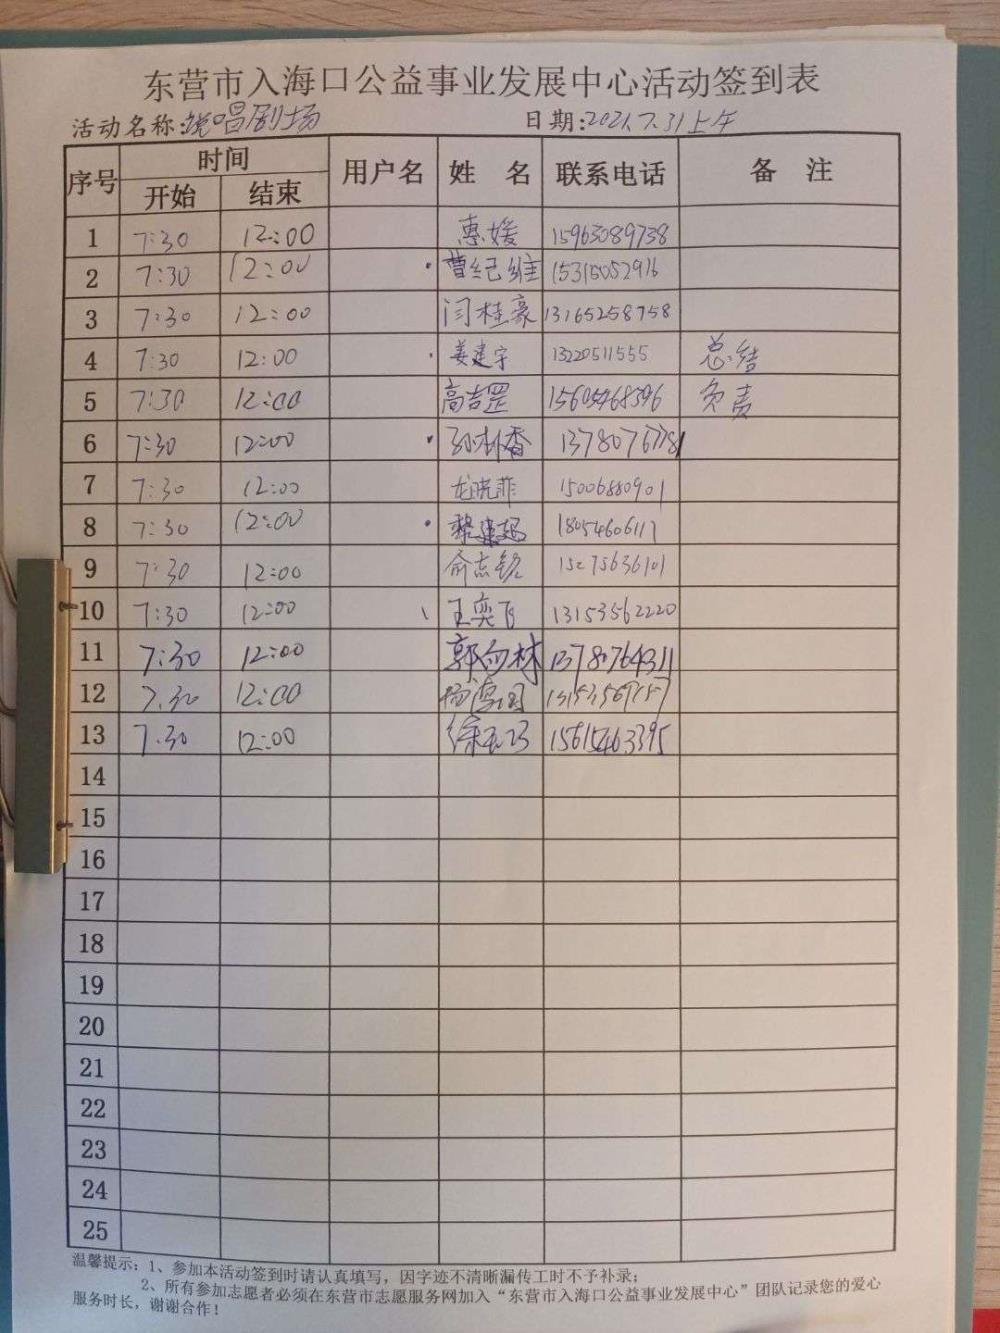 东营市入海口公益事业发展中心活动签到表
活动名称:说唱剧场 日期:2021.7.31上午
序号 时间 用户名 姓 名 联系电话 备 注
开始 结束
1 7:30 12:00 惠媛 15963089738
2 7:30 12:00 曹纪维 15315052916
3 7:30 12:00 闫桂豪 13165258758
4 7:30 12:00 姜建宇 13220511555 总结
5 7:30 12:00 高吉罡 15605468596 负责
6 7:30 12:00 13780767781
7 7:30 12:00 龙晓菲 15006880901
8 7:30 12:00 18054606117
9 7:30 12:00 俞志铭 15275636101
10 7:30 12:00 王奕飞 13153562220
11 7:30 12:00 郭向林 13780764311
12 7.30 12:00
13 7.30 12:00 15615463395
14
15
16
17
18
19
20
21
22
23
24
25
温馨提示:1、参加本活动签到时请认真填写,因字迹不清晰漏传工时不予补录;
2、所有参加志愿者必须在东营市志愿服务网加入“东营市入海口公益事业发展中心”团队记录您的爱心
服务时长,谢谢合作!